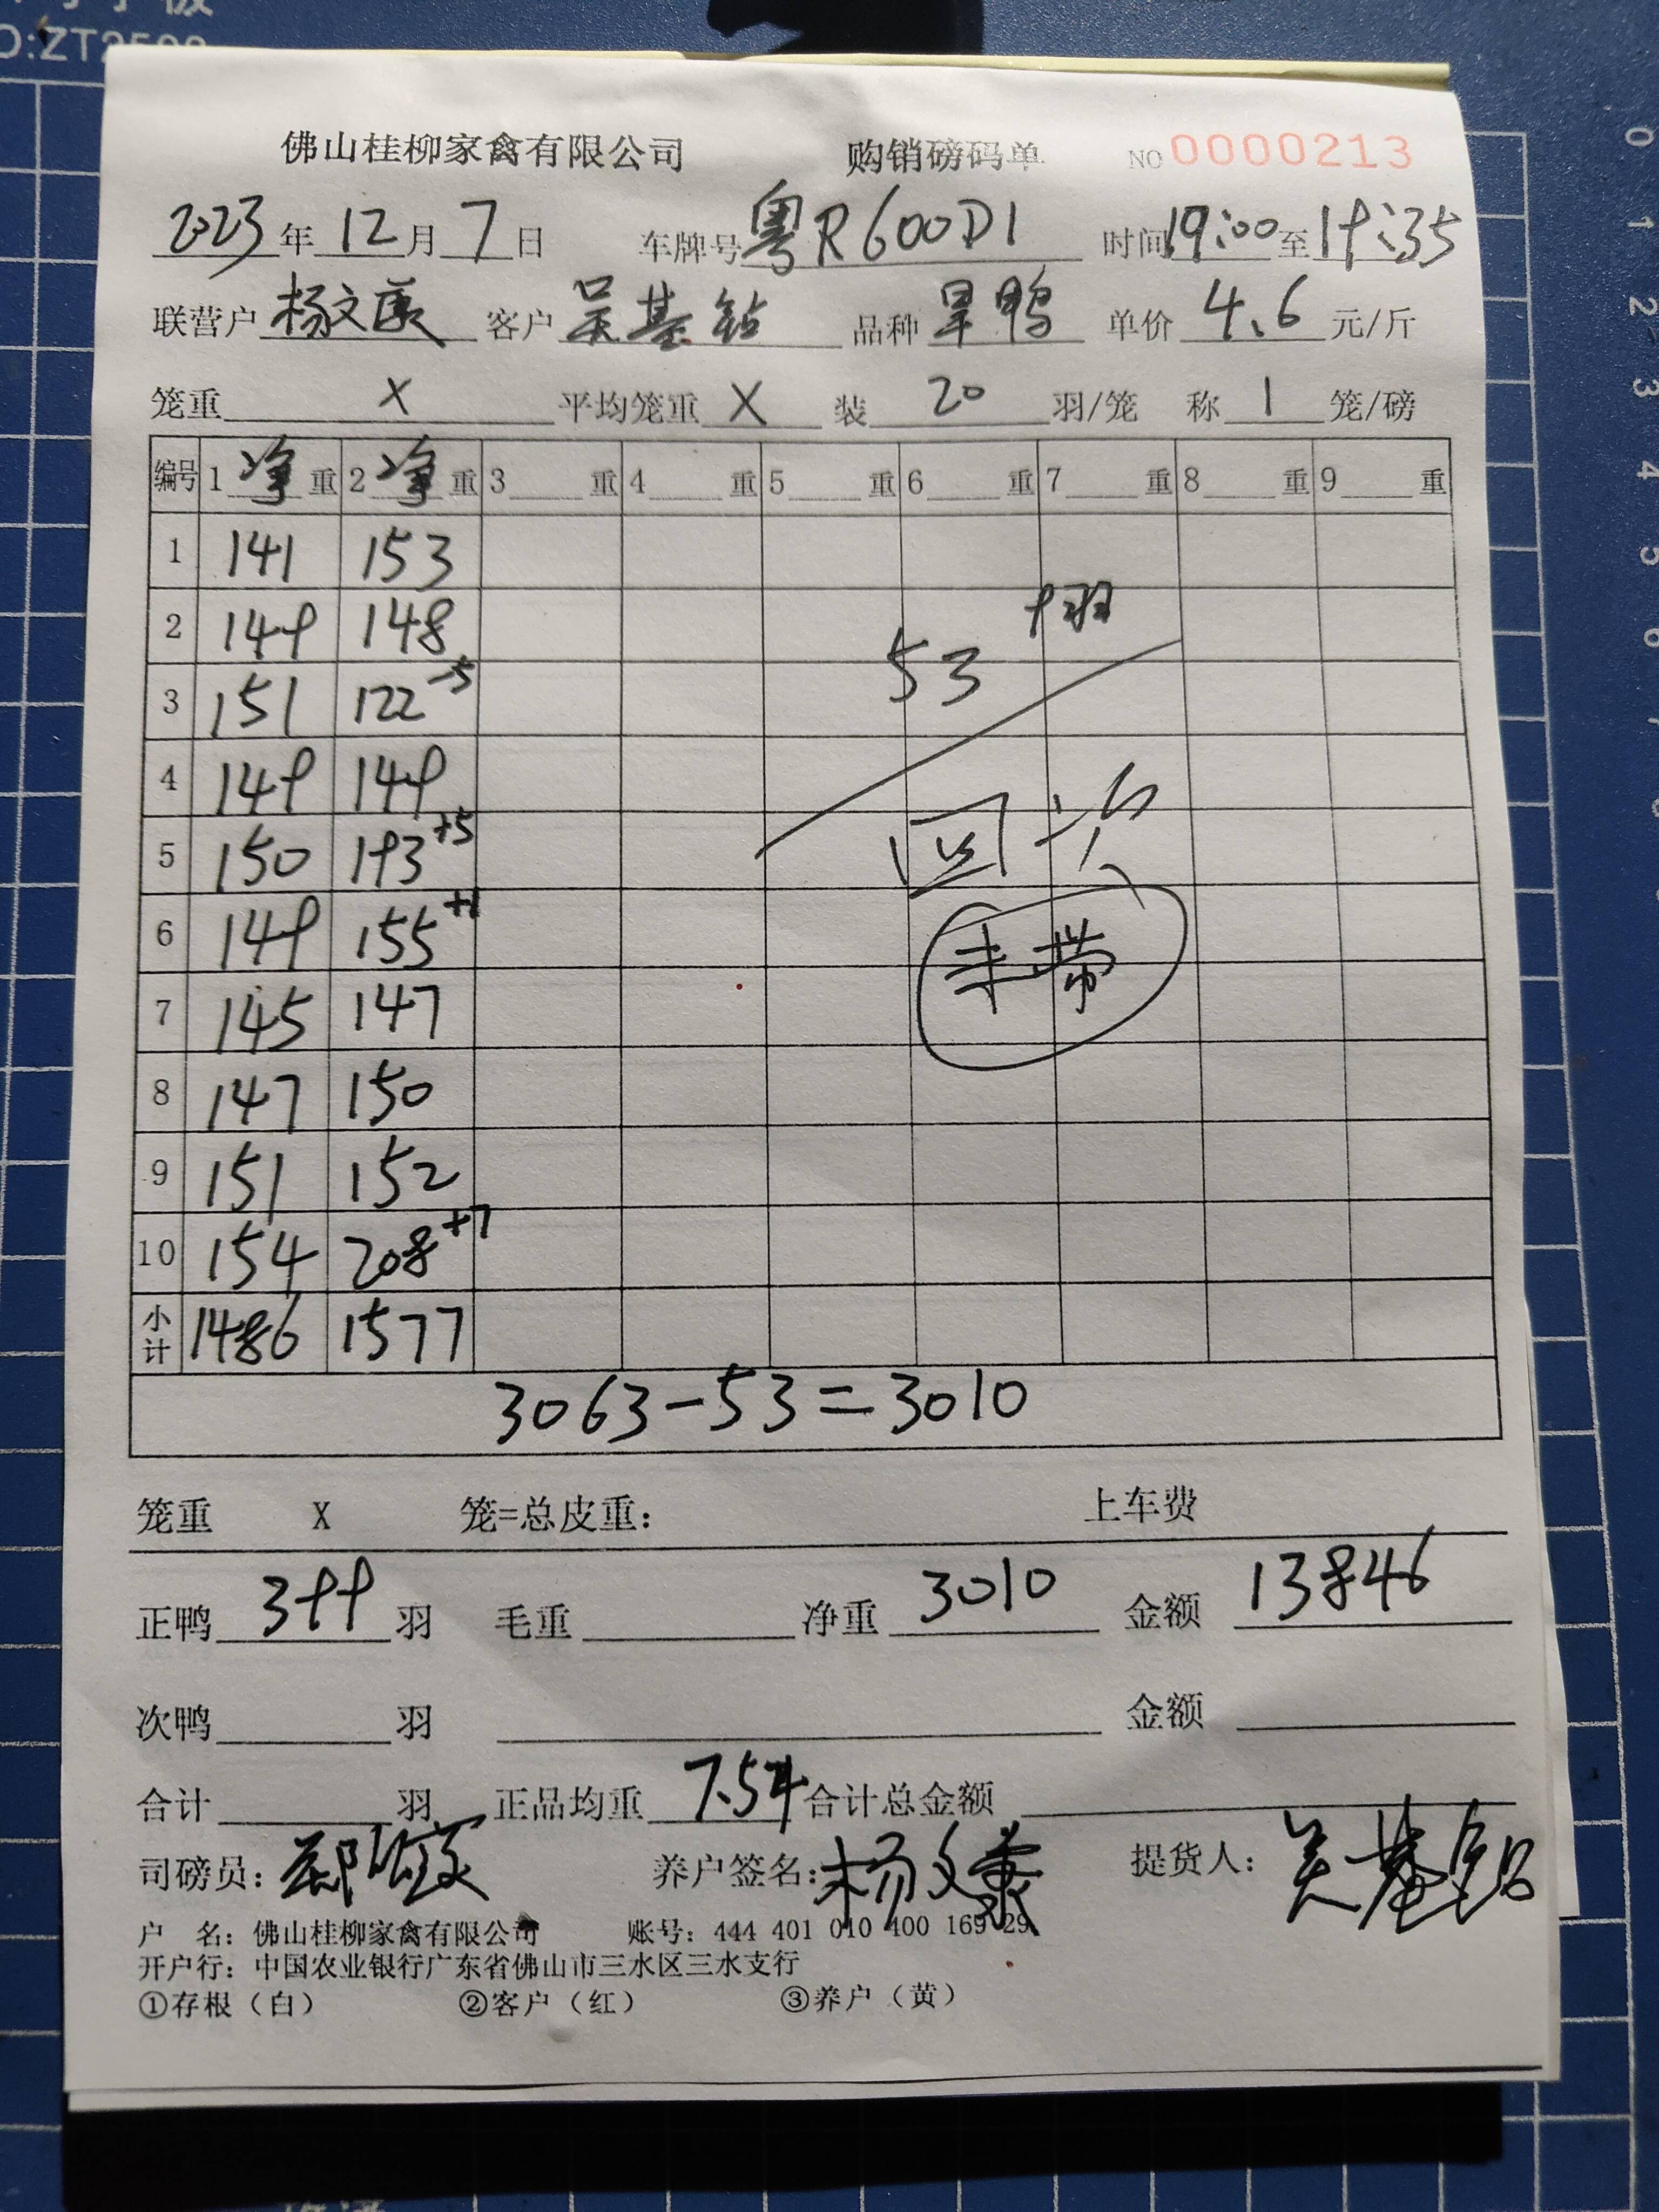 佛山桂柳家禽有限公司 购销磅码单 NO 0000213
2023 年 12 月 7 日 车牌号 粤R600D1 时间 19:00 至 19:35
联营户 杨文康 客户 吴基铅 品种 旱鸭 单价 4.6 元/斤
笼重 X 平均笼重 X 装 20 羽/笼 称 1 笼/磅
编号 1 净 重 2 净 重 3 重 4 重 5 重 6 重 7 重 8 重 9 重
1 141 153
2 149 148
3 151 122 -5
4 149 149
5 150 193 +5
6 149 155 +1
7 145 147
8 147 150
9 151 152
10 154 208 +7
小计 1486 1577
53
3063-53=3010
笼重 X 笼=总皮重: 上车费
正鸭 399 羽 毛重 净重 3010 金额 13846
次鸭 羽 金额
合计 羽 正品均重 7.54 合计总金额
司磅员: 养户签名: 杨文康 提货人:
户 名: 佛山桂柳家禽有限公司 账号: 444 401 010 400 169 29
开户行: 中国农业银行广东省佛山市三水区三水支行
①存根(白) ②客户(红) ③养户(黄)